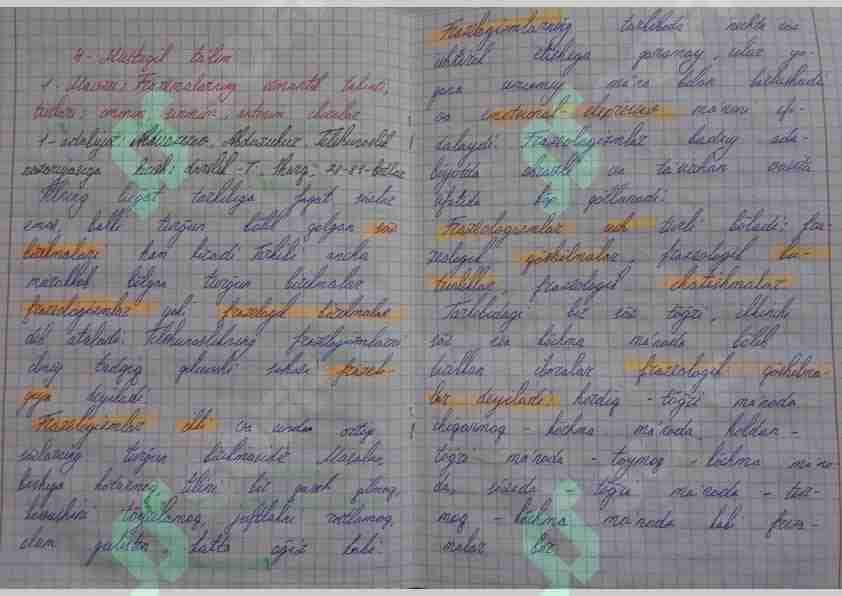 4- Mustaqil ta'lim
1- Mavzu: Frazemalarning semantik tabiati,
turlari: omonim, sinonim, antonim iboralar
1- adabiyot: Abduzuhur, Tilshunoslik
nazariyasiga kirish: darslik -T.: Sharq,
tilning lug'at tarkibiga faqat so'zlar
emas, balki turg'un bo'lib qolgan so'z
birikmalari ham kiradi Tarkibi ancha
murakkab bo'lgan turg'un birikmalar
frazeologizmlar yoki frazeologik birikmalar
deb ataladi. Tilshunoslikning frazeologizmlarni
tadqiq qiluvchi sohasi frazeolo-
giya deyiladi
Frazeologizmlar ikki va undan ortiq
so'zlarning turg'un birikmasidir Masalan,
boshga ko'tarmoq, tilini bir qarich qilmoq,
to'g'rilamoq, juftlakni rostlamoq,
olam guliston, hatto og'iz kabi.
Frazeologizmlarning tarkibidi nechta so'z
ishtirok etishiga qaramay, ular ya-
gona umumiy ma'no bilan birlashadi
va emotsional- ekspressiv ma'noni if-
odalaydi. Frazeologizmlar badiiy ada-
biyotda obrazlik va ta'sirchan vosita
sifatida ko'p qo'llanadi.
Frazeologizmlar uch turli bo'ladi: fra-
zeologik qo'shilmalar, frazeologik bu-
tunliklar, frazeologik chatishmalar
Tarkibidagi bir so'z to'g'ri, ikkinchi
so'z esa ko'chma ma'noda bo'lib
birikkan iboralar frazeologik qo'shilma-
lar deyiladi: ko'rdiq - to'g'ri ma'noda
chiqarmoq - ko'chma ma'noda, holdan -
to'g'ri ma'noda - toymoq - ko'chma ma'no-
da, so'zida - to'g'ri ma'noda - tur-
moq - ko'chma ma'noda kabi fraze-
malar bor